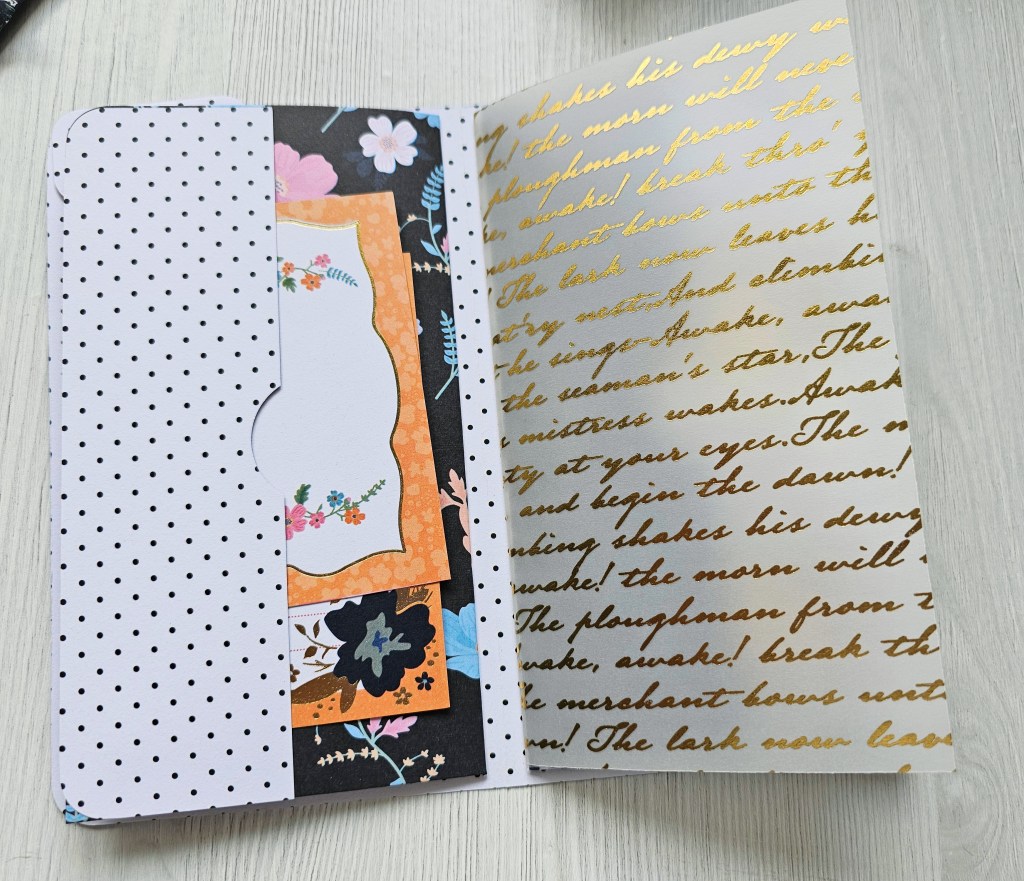 shakes his dewy
the morn will neve
ploughman from the
awake! break thro'
merchant bows unto th
The lark now leaves h
nest,And climbin
he sings-Awake, awa
the seaman's star,The
mistress wakes.Awak
ty at your eyes.The m
and begin the dawn!
mbing shakes his dewy
awake! the morn will
The ploughman from t
wake, awake! break th
he merchant bows unt
wn! The lark now leave